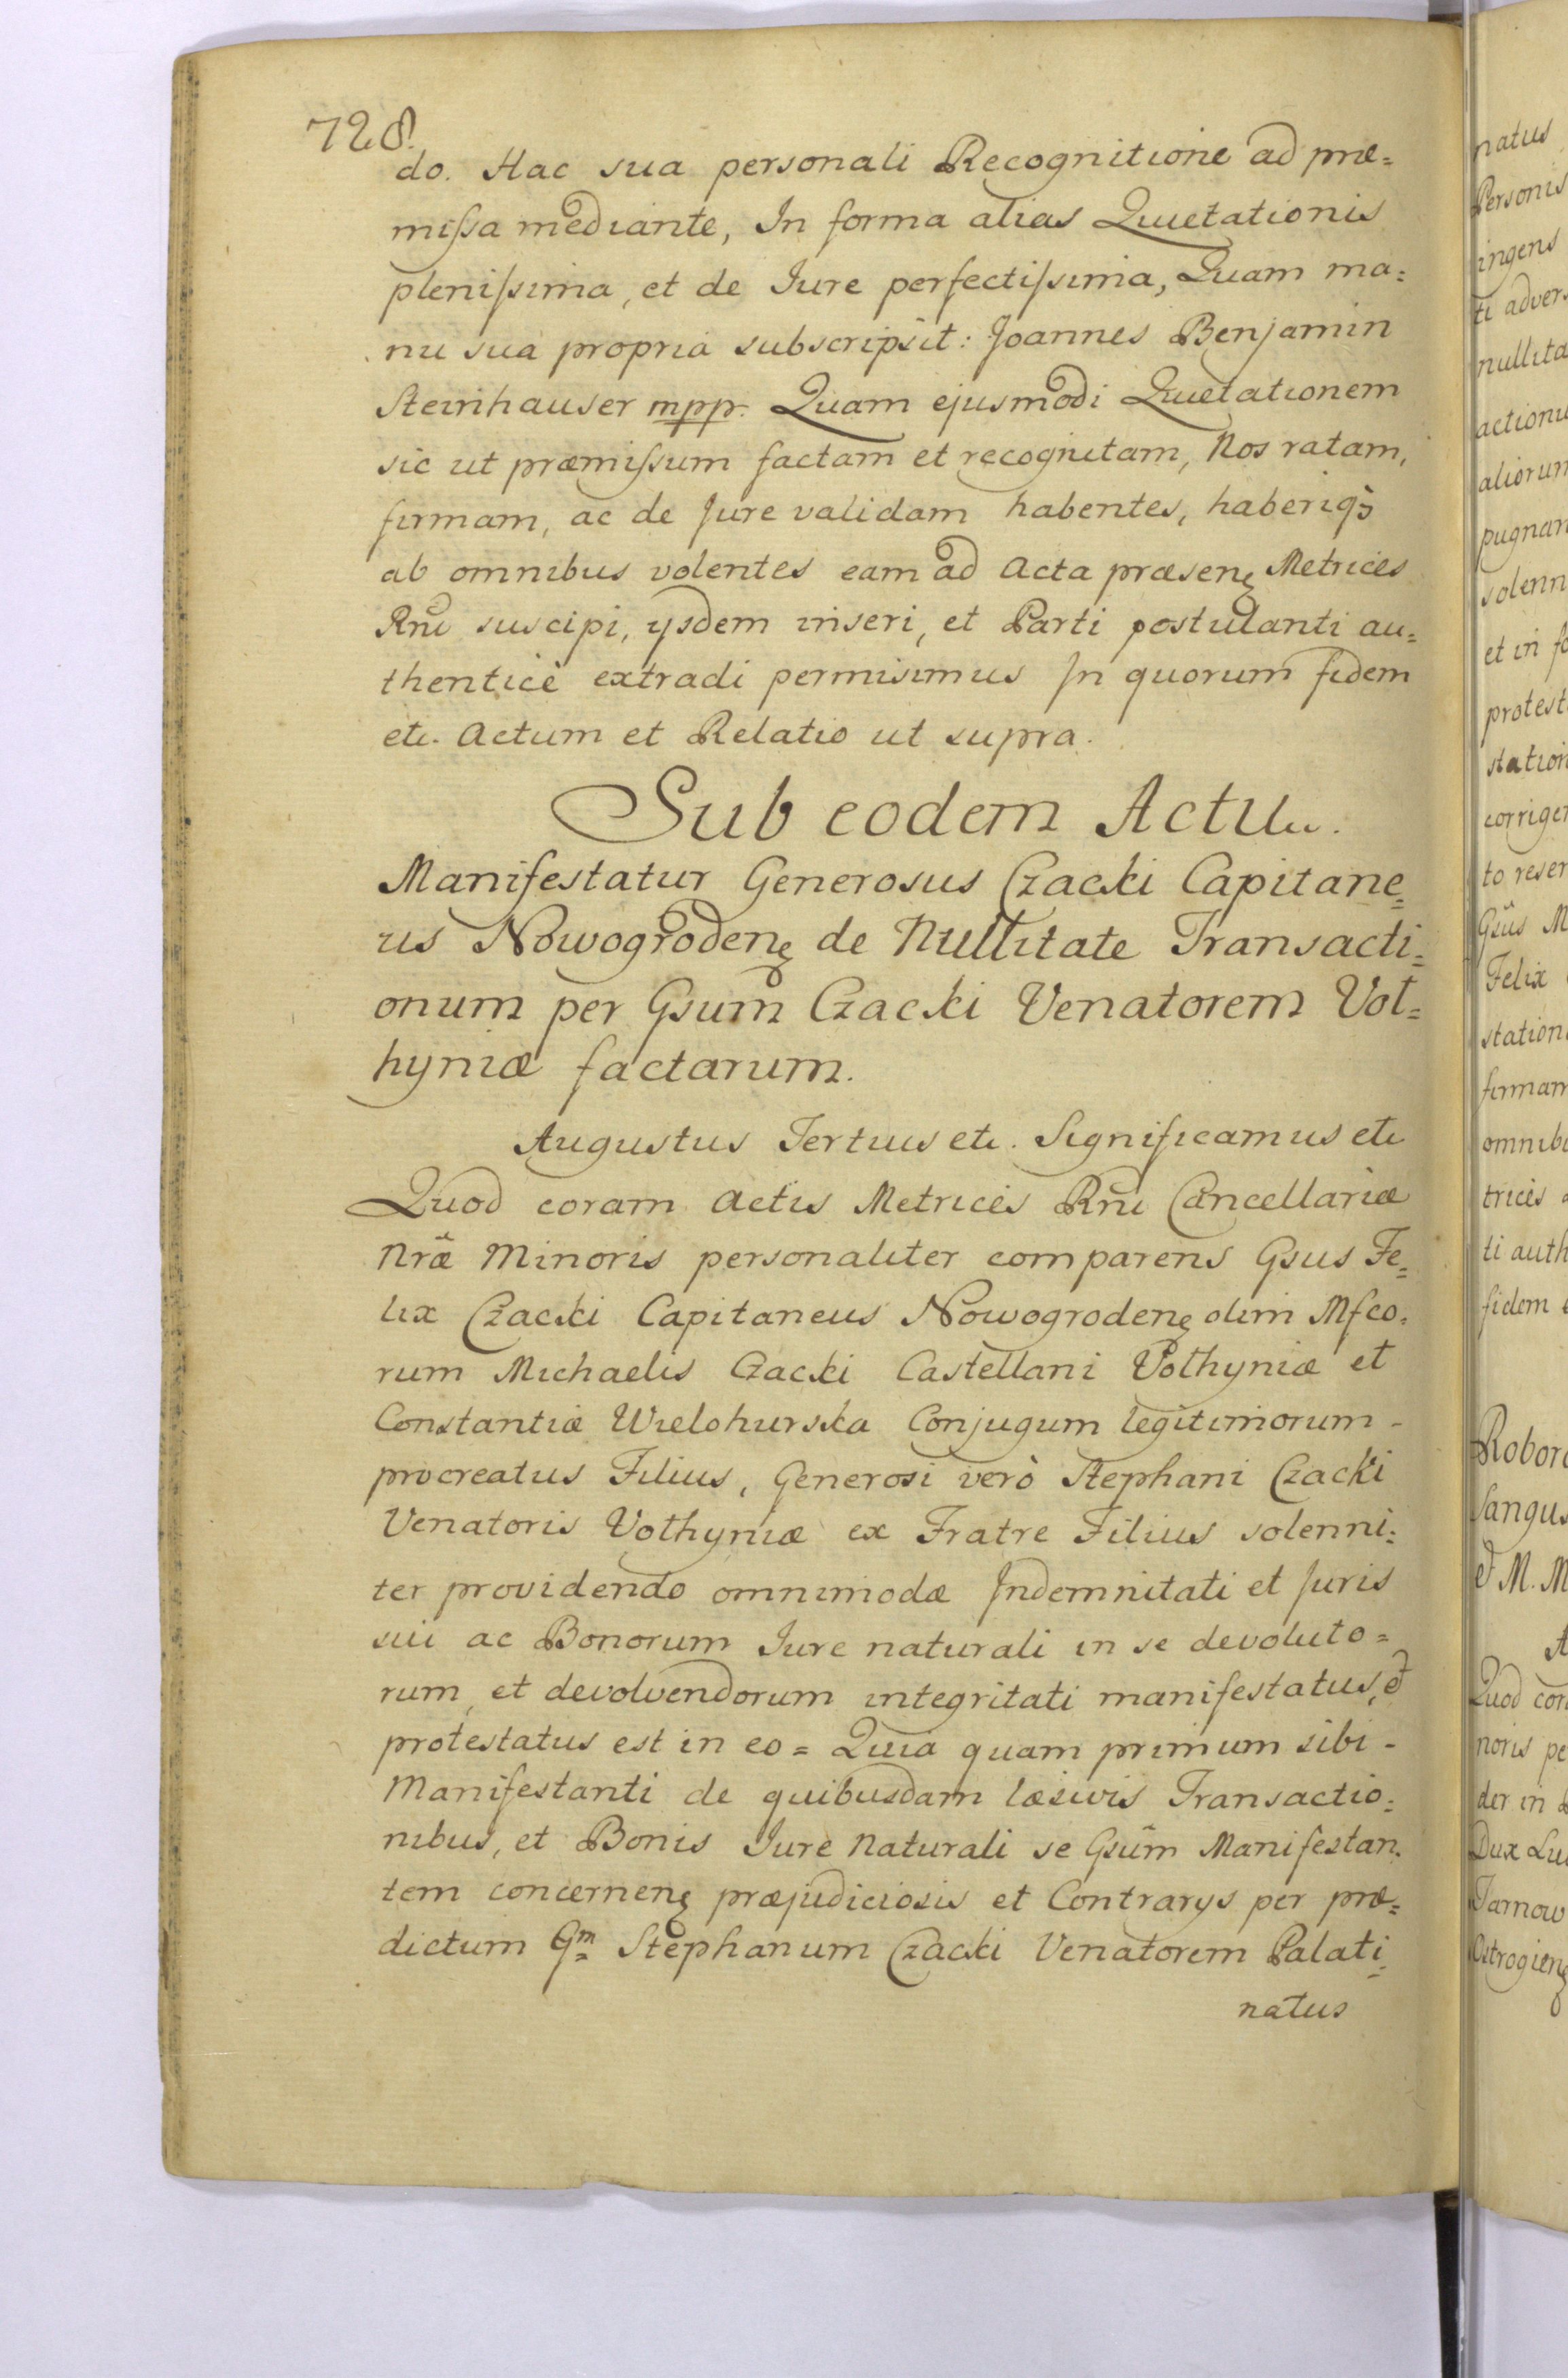 728.
do. Hac sua personali Recognitione ad præ=
missa mediante, In forma alias Quietationis
plenissima, et de Iure perfectissima, Quam ma=
nu sua propria subscripsit: Joannes Benjamin
Steinhauser mpp. Quam ejusmodi Quietationem
sic ut præmissum factam et recognitam, Nos ratam,
firmam, ac de Jure validam habentes, haberiqꝫ
ab omnibus volentes eam ad Acta præsenę Metrices
Rñi suscipi, ysdem inseri, et Parti postulanti au=
thenticè extradi permisimus In quorum fidem
etc. Actum et Relatio ut supra.
Sub eodem Actu.
Manifestatur Generosus Czacki Capitane=
us Nowogrodenę de Nullitate Transacti=
onum per Gsum Czacki Venatorem Vol=
hyniæ factarum.
Augustus Tertius etc. Significamus etc
Quod coram Actis Metrices Rñi Cancellariæ
Nræ Minoris personaliter comparens Gsus Fe=
lix Czacki Capitaneus Nowogrodenę olim Mfco=
rum Michaelis Czacki Castellani Volhyniæ et
Constantiæ Wielohurska Conjugum legitimorum -
procreatus Filius, Generosi verò Stephani Czacki
Venatoris Volhyniæ ex Fratre Filius solenni=
ter providendo omnimodæ Indemnitati et Juris
sui ac Bonorum Iure naturali in se devoluto=
rum, et devolvendorum integritati manifestatus, et
protestatus est in eo = Quia quam primum sibi -
Manifestanti de quibusdam læsivis Transactio=
nibus, et Bonis Iure Naturali se Gsum Manifestan=
tem concernenę præjudiciosis et Contrarys per præ=
dictum Gm Stephanum Czacki Venatorem Palati=
natus
natus
Personis
ingens
ti advers
nullita
actionu
aliorum
pugnan
solenn
et in fo
protest
station
corrigen
to reser
Gsus M
Felix
station
firmam
omnib
trices a
ti auth
fidem e
Robora
Sangus
et M. M
A
Quod cor
noris pe
der in
Dux Lu
Tarnow
Ostrogienę